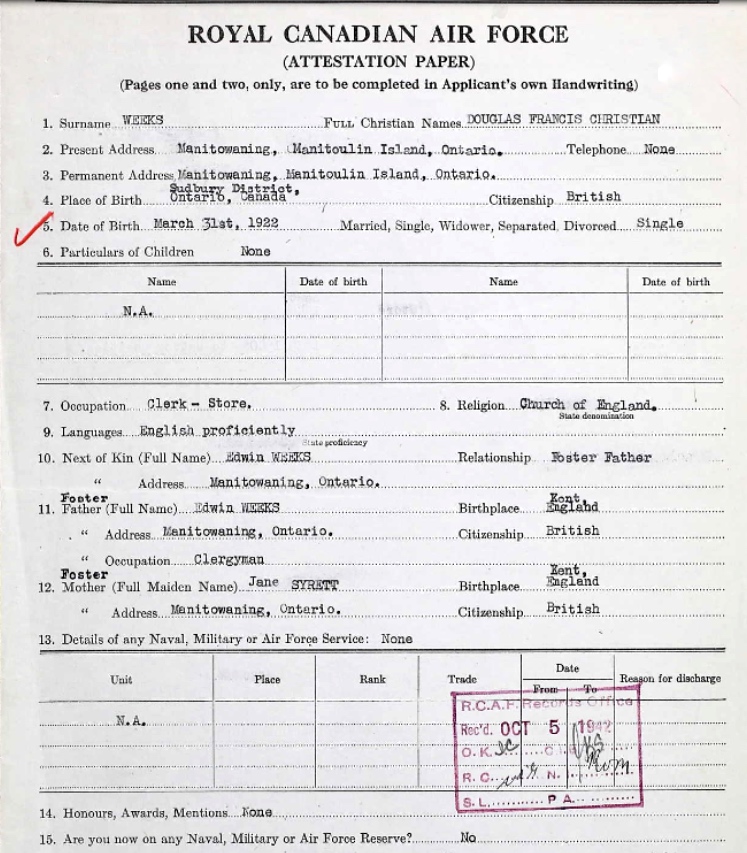 ROYAL CANADIAN AIR FORCE
(ATTESTATION PAPER)
(Pages one and two, only, are to be completed in Applicant's own Handwriting)
1. Surname WEEKS FULL Christian Names DOUGLAS FRANCIS CHRISTIAN
2. Present Address Manitowaning, Manitoulin Island, Ontario. Telephone None
3. Permanent Address Manitowaning, Manitoulin Island, Ontario.
Sudbury District,
4. Place of Birth Ontario, Canada Citizenship British
5. Date of Birth March 31st, 1922 Married, Single, Widower, Separated, Divorced Single
6. Particulars of Children None
Name Date of birth Name Date of birth
N.A.
7. Occupation Clerk - Store. 8. Religion Church of England.
State denomination
9. Languages English proficiently
State proficiency
10. Next of Kin (Full Name) Edwin WEEKS Relationship Foster Father
" Address Manitowaning, Ontario.
Foster Kent,
11. Father (Full Name) Edwin WEEKS Birthplace England
" Address Manitowaning, Ontario. Citizenship British
" Occupation Clergyman
Foster Kent,
12. Mother (Full Maiden Name) Jane SYRETT Birthplace England
" Address Manitowaning, Ontario. Citizenship British
13. Details of any Naval, Military or Air Force Service: None
Unit Place Rank Trade Date Reason for discharge
From To
N.A.
R.C.A.F. Records Office
Rec'd. OCT 5 1942
O.K.
R.C. N.
S.L. P.A.
14. Honours, Awards, Mentions None
15. Are you now on any Naval, Military or Air Force Reserve? No